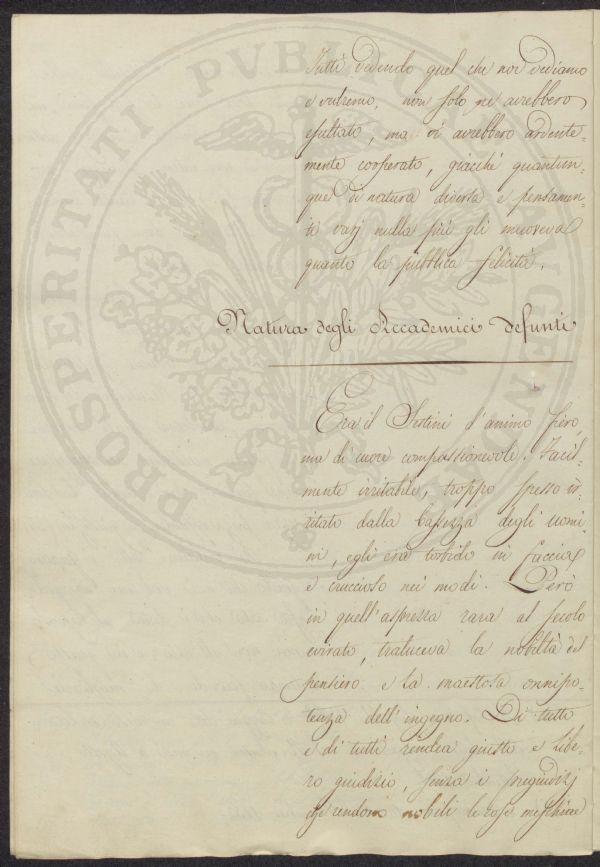 Tutti vedendo quel che noi vediamo
e vedremo, non solo ne avrebbero
esultato, ma vi avrebbero ardente-
mente cooperato, giacchè quantun-
que di natura diversa e pensamen-
ti varj nulla più gli muoveva
quanto la pubblica felicità.
Natura degli Accademici defunti
Era il Sestini d'animo fiero
ma di cuore compassionevole. Facil-
mente irritabile, troppo spesso ir-
ritato dalla bassezza degli uomi-
ni, egli era torbido in faccia
e cruccioso nei modi. Però
in quell'asprezza rara al secolo
evirato, traluceva la nobiltà del
pensiero e la maestosa onnipo-
tenza dell'ingegno. Di tutto
e di tutti rendea giusto e libe-
ro giudizio, senza i pregiudizj
che rendono nobili le cose meschine
PROSPERITATI PVBLICAE AVGENDAE